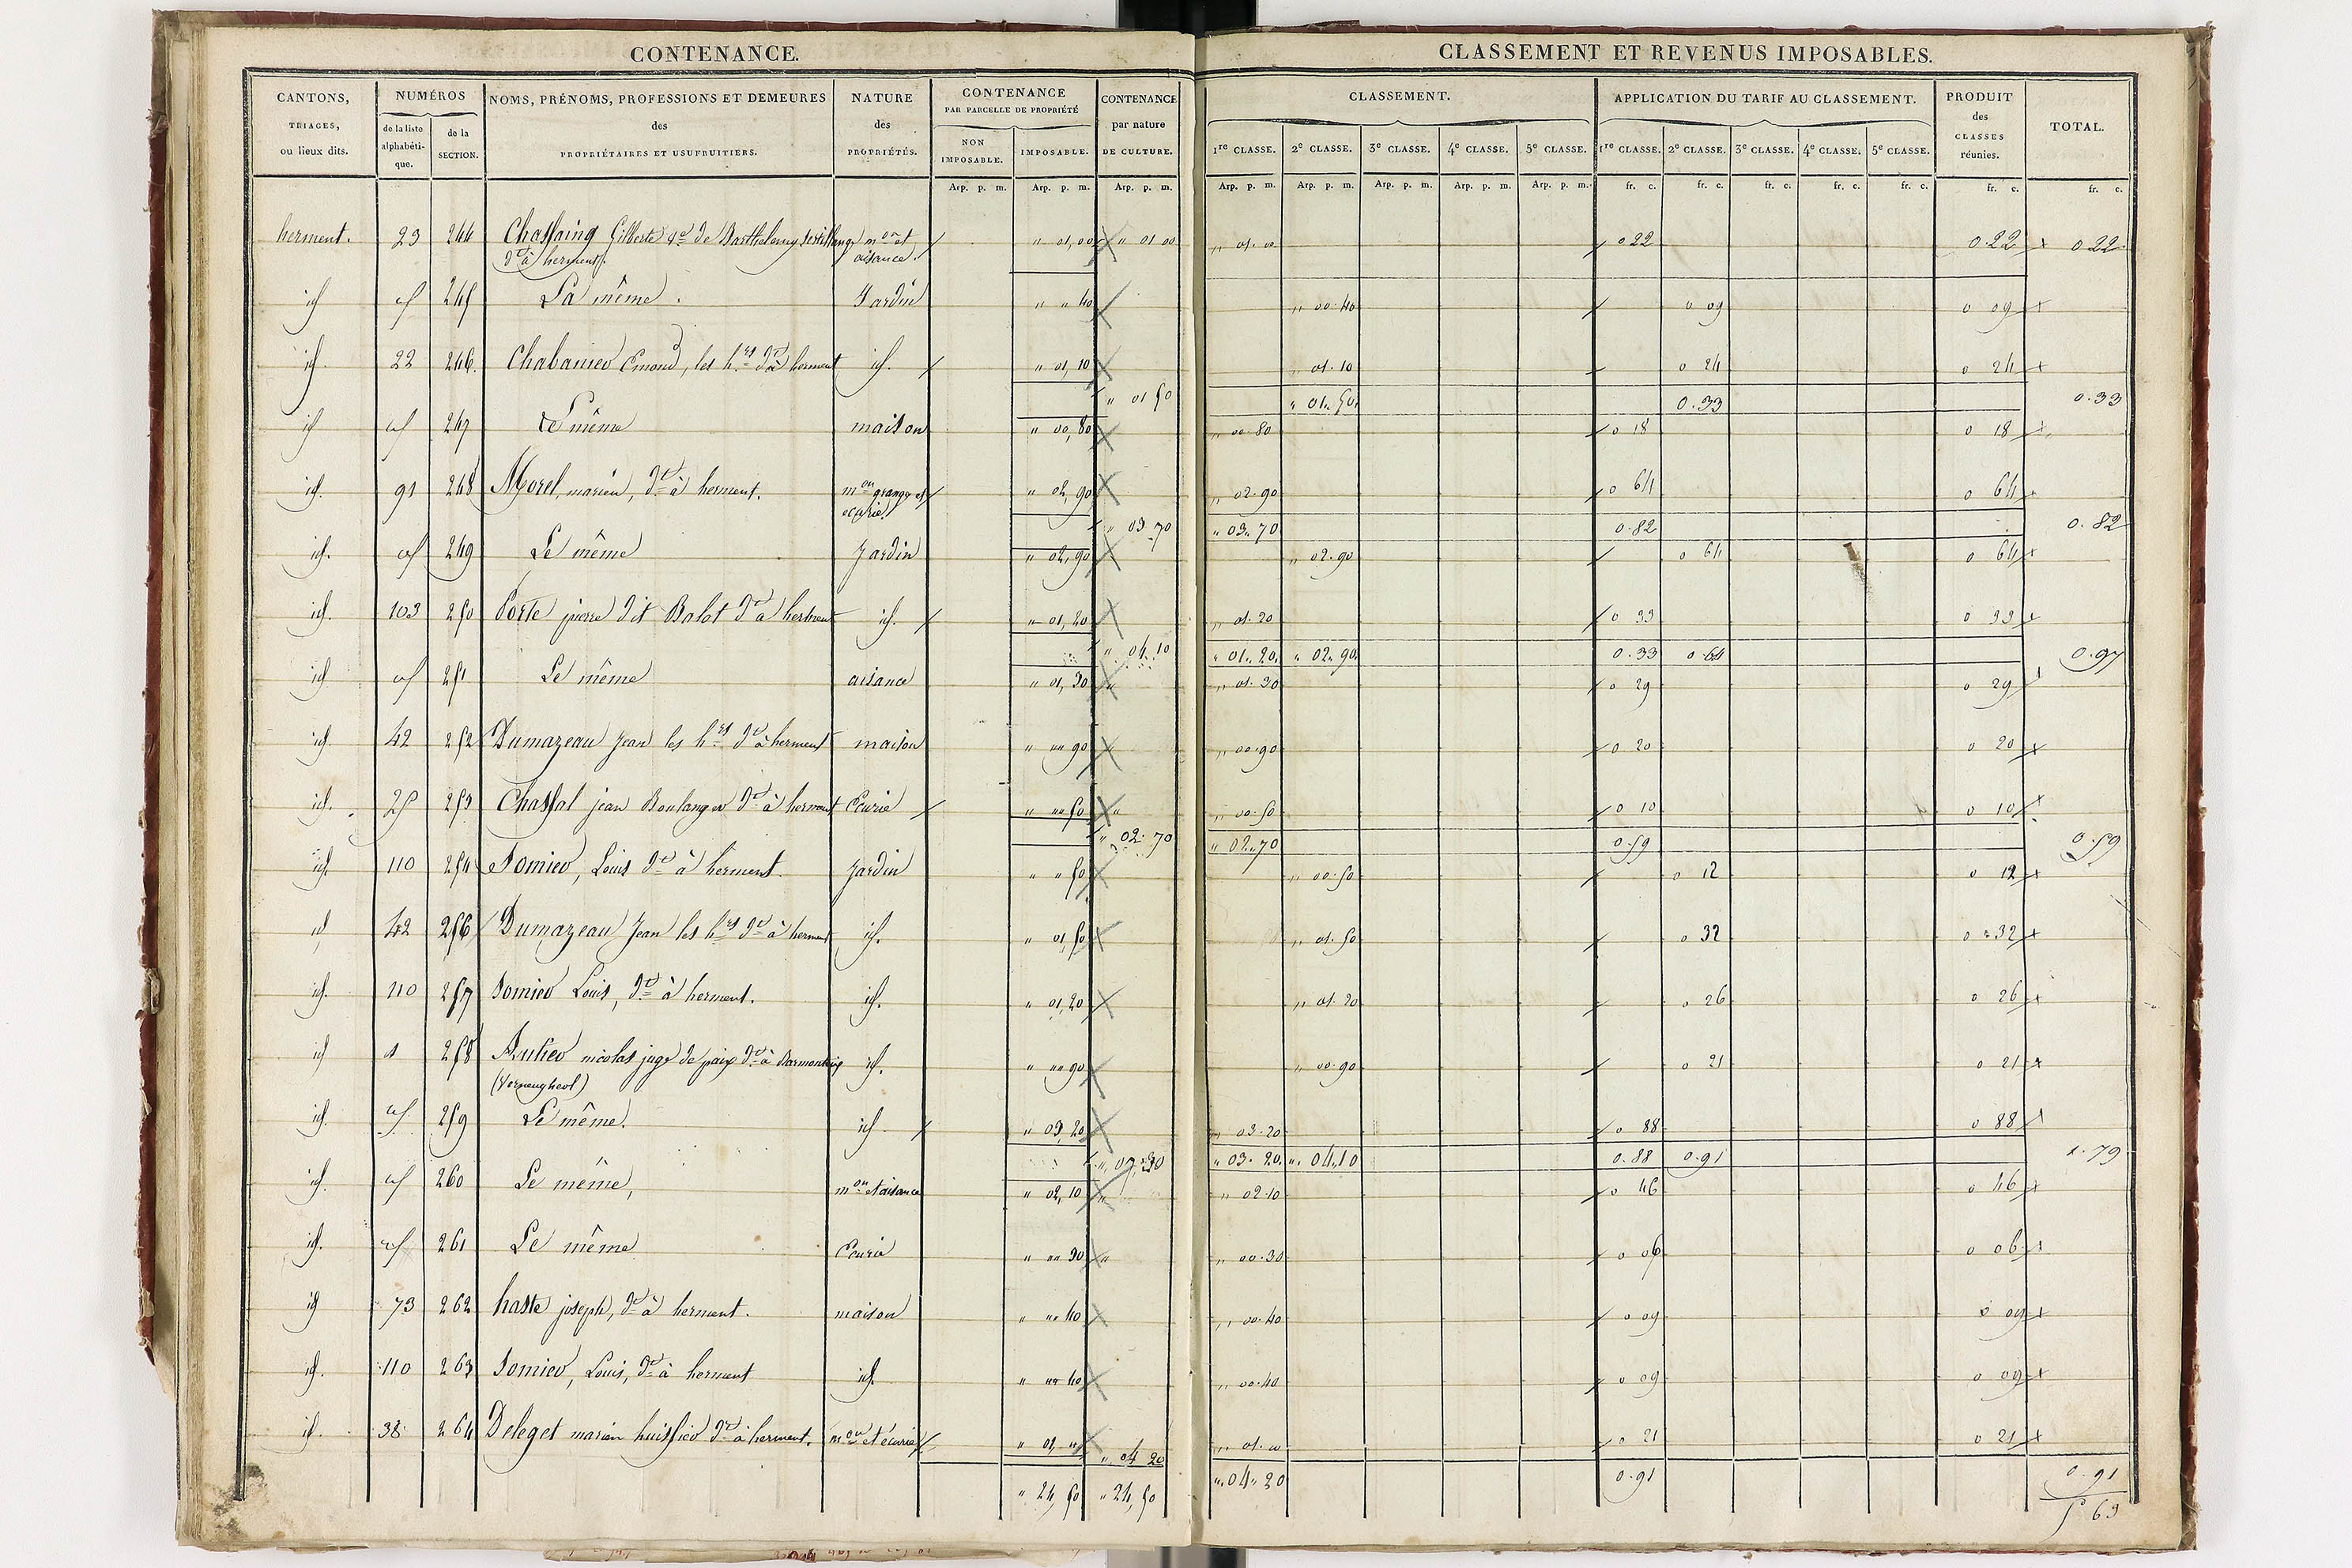 CONTENANCE.
CLASSEMENT ET REVENUS IMPOSABLES.
CANTONS, TRIAGES, ou lieux dits.
NUMÉROS
de la liste alphabétique.
de la SECTION.
NOMS, PRÉNOMS, PROFESSIONS ET DEMEURES
des
PROPRIÉTAIRES ET USUFRUITIERS.
NATURE des PROPRIÉTÉS.
CONTENANCE
PAR PARCELLE DE PROPRIÉTÉ
NON IMPOSABLE.
IMPOSABLE.
CONTENANCE par nature DE CULTURE.
CLASSEMENT.
1re CLASSE. 2e CLASSE. 3e CLASSE. 4e CLASSE. 5e CLASSE.
APPLICATION DU TARIF AU CLASSEMENT.
1re CLASSE. 2e CLASSE. 3e CLASSE. 4e CLASSE. 5e CLASSE.
PRODUIT des CLASSES réunies.
TOTAL.
Arp. p. m. Arp. p. m. Arp. p. m. Arp. p. m. Arp. p. m. Arp. p. m. Arp. p. m. Arp. p. m. fr. c. fr. c. fr. c. fr. c. fr. c. fr. c. fr. c.
herment. 23 244 Chassaing Gilberte de Barthelemy mon et " 01,00 " 01 00 " 01.00 0 22 0.22 0 22
dt à herment. aisance.
id id 245 La même. Jardin " " 40 " 00.40 0 09 0 09
id 22 246. Chabanier Emond, les hrs dt à herment id. " 01,10 " 01.10 0 24 0 24
" 01 50 " 01.50 0.33 0.33
id id 247 Le même maison " 00,80 " 00.80 0 18 0 18
id. 91 248 Morel, marien, dt à herment. mon grange et " 02,90 " 02.90 0 64 0 64
ecurie.
" 03 70 " 03.70 0.82 0.82
id. id 249 Le même Jardin " 02,90 " 02.90 0 64 0 64
id. 103 250 Porte pierre dit Balot dt à herment id. " 01,20 " 01.20 0 33 0 33
" 04.10 " 01.20. " 02.90. 0.33 0.64 0.97
id id 251 Le même aisance " 01,30 " 01.30 0 29 0 29
id 42 252 Dumazeau Jean les hrs dt à herment maison " "" 90 " 00.90 0 20 0 20
id. 25 253 Chassal jean Boulanger dt à herment Ecurie " "" 50 " 00.50 0 10 0 10
" 02.70 " 02.70 0.59 0.59
id. 110 254 Somier, Louis dt à herment. Jardin " " 50 " 00.50 0 12 0 12
id 42 256 Dumazeau Jean les hrs dt à herment id. " 01,50 " 01.50 0 32 0 32
id. 110 257 Somier Louis, dt à herment. id. " 01,20 " 01.20 0 26 0 26
id 1 258 nicolas juge de paix dt à id. " "" 90 " 00.90 0 21 0 21
(Verneugheol)
id. id 259 Le même. id. " 03,20 " 03.20 0 88 0 88
" 07,30 " 03.20. " 04.10 0.88 0.91 1.79
id. id 260 Le même, mon et aisance " 02,10 " 02.10 0 46 0 46
id. id 261 Le même Ecurie " "" 30 " 00.30 0 06 0 06
id 73 262 haste joseph, dt à herment. maison " "" 40 " 00.40 0 09 0 09
id. 110 263 Somier, Louis, dt à herment id. " "" 40 " 00.40 0 09 0 09
id. 38 264 Deleget marien huissier dt à herment. mon et écurie " 01, " " 04 20 " 01.00 0 21 0 21
" 24,50 " 24,50 " 04.20 0.91 0.91
5 63